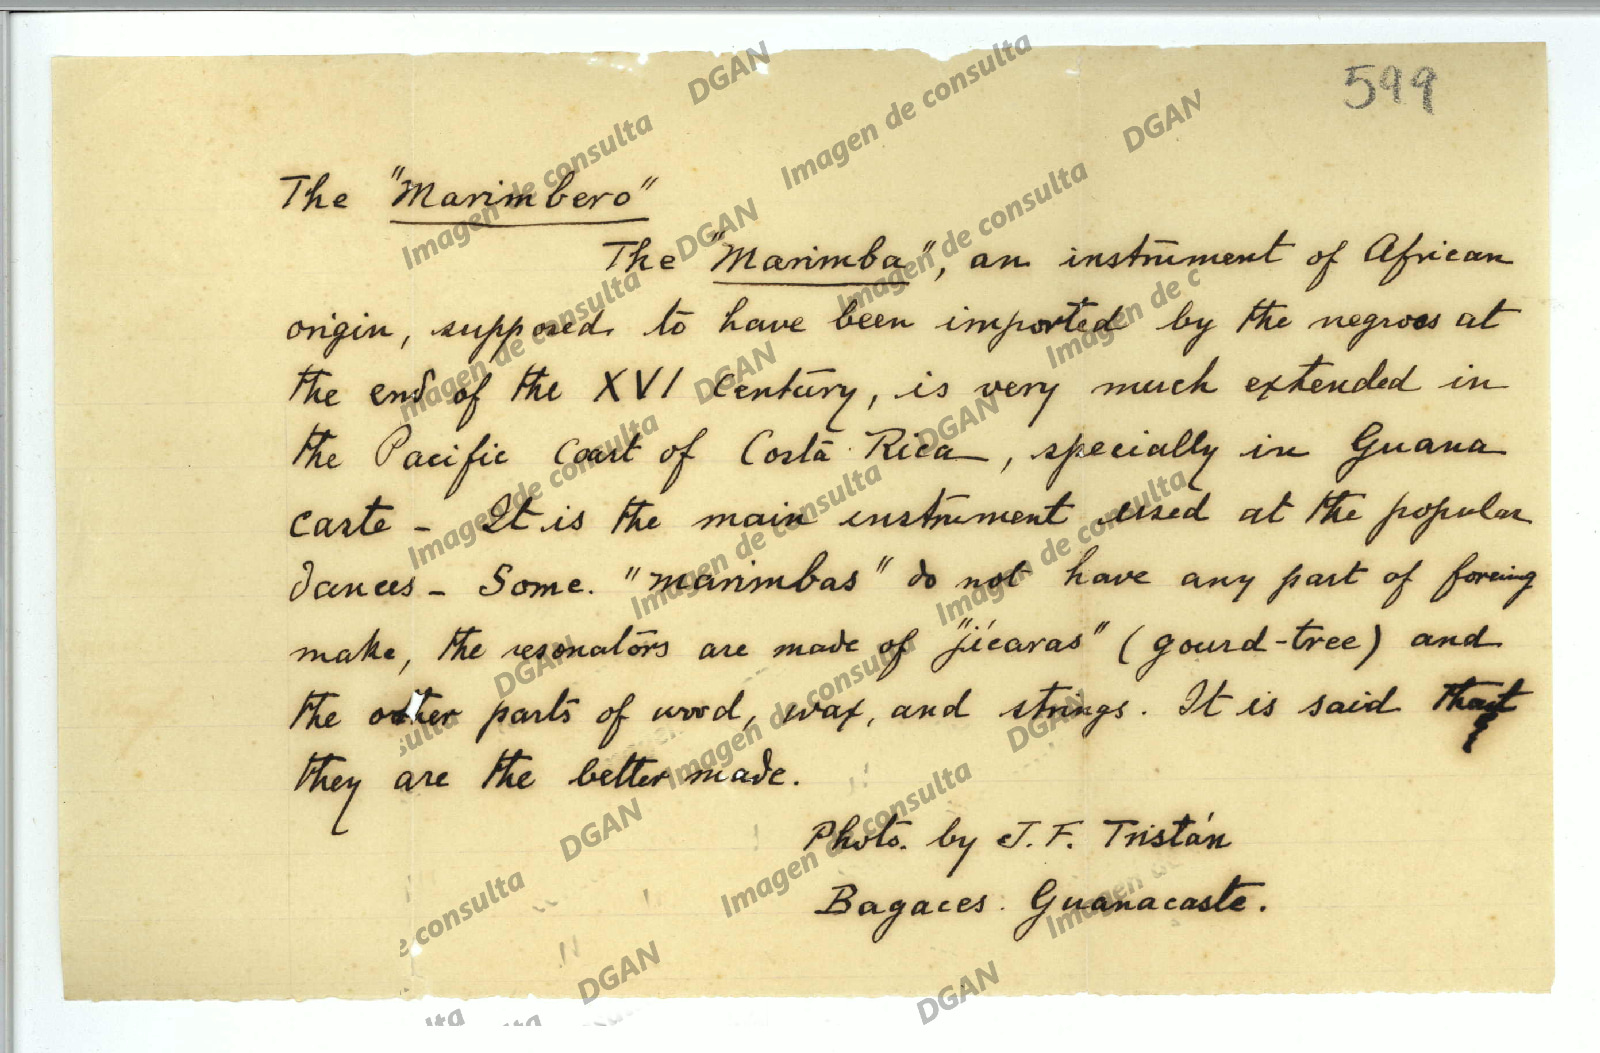 599
The "Marimbero"
The "Marimba", an instrument of African
origin, supposed to have been imported by the negroes at
the end of the XVI century, is very much extended in
the Pacific Coast of Costa Rica, specially in Guana
caste - It is the main instrument used at the popular
dances - Some. "marimbas" do not have any part of foreing
make, the resonators are made of "jícaras" (gourd-tree) and
the other parts of wood, wax, and strings. It is said that
they are the better made.
Photo. by J. F. Tristán
Bagaces. Guanacaste.
DGAN
Imagen de consulta